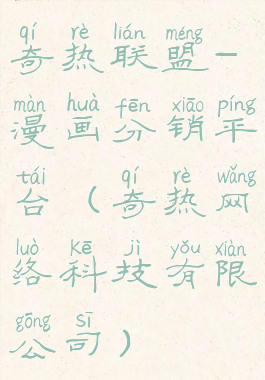 qí rè lián méng
奇热联盟一
màn huà fēn xiāo píng
漫画分销平
tái qí rè wǎng
台(奇热网
luò kē jì yǒu xiàn
络科技有限
gōng sī
公司)